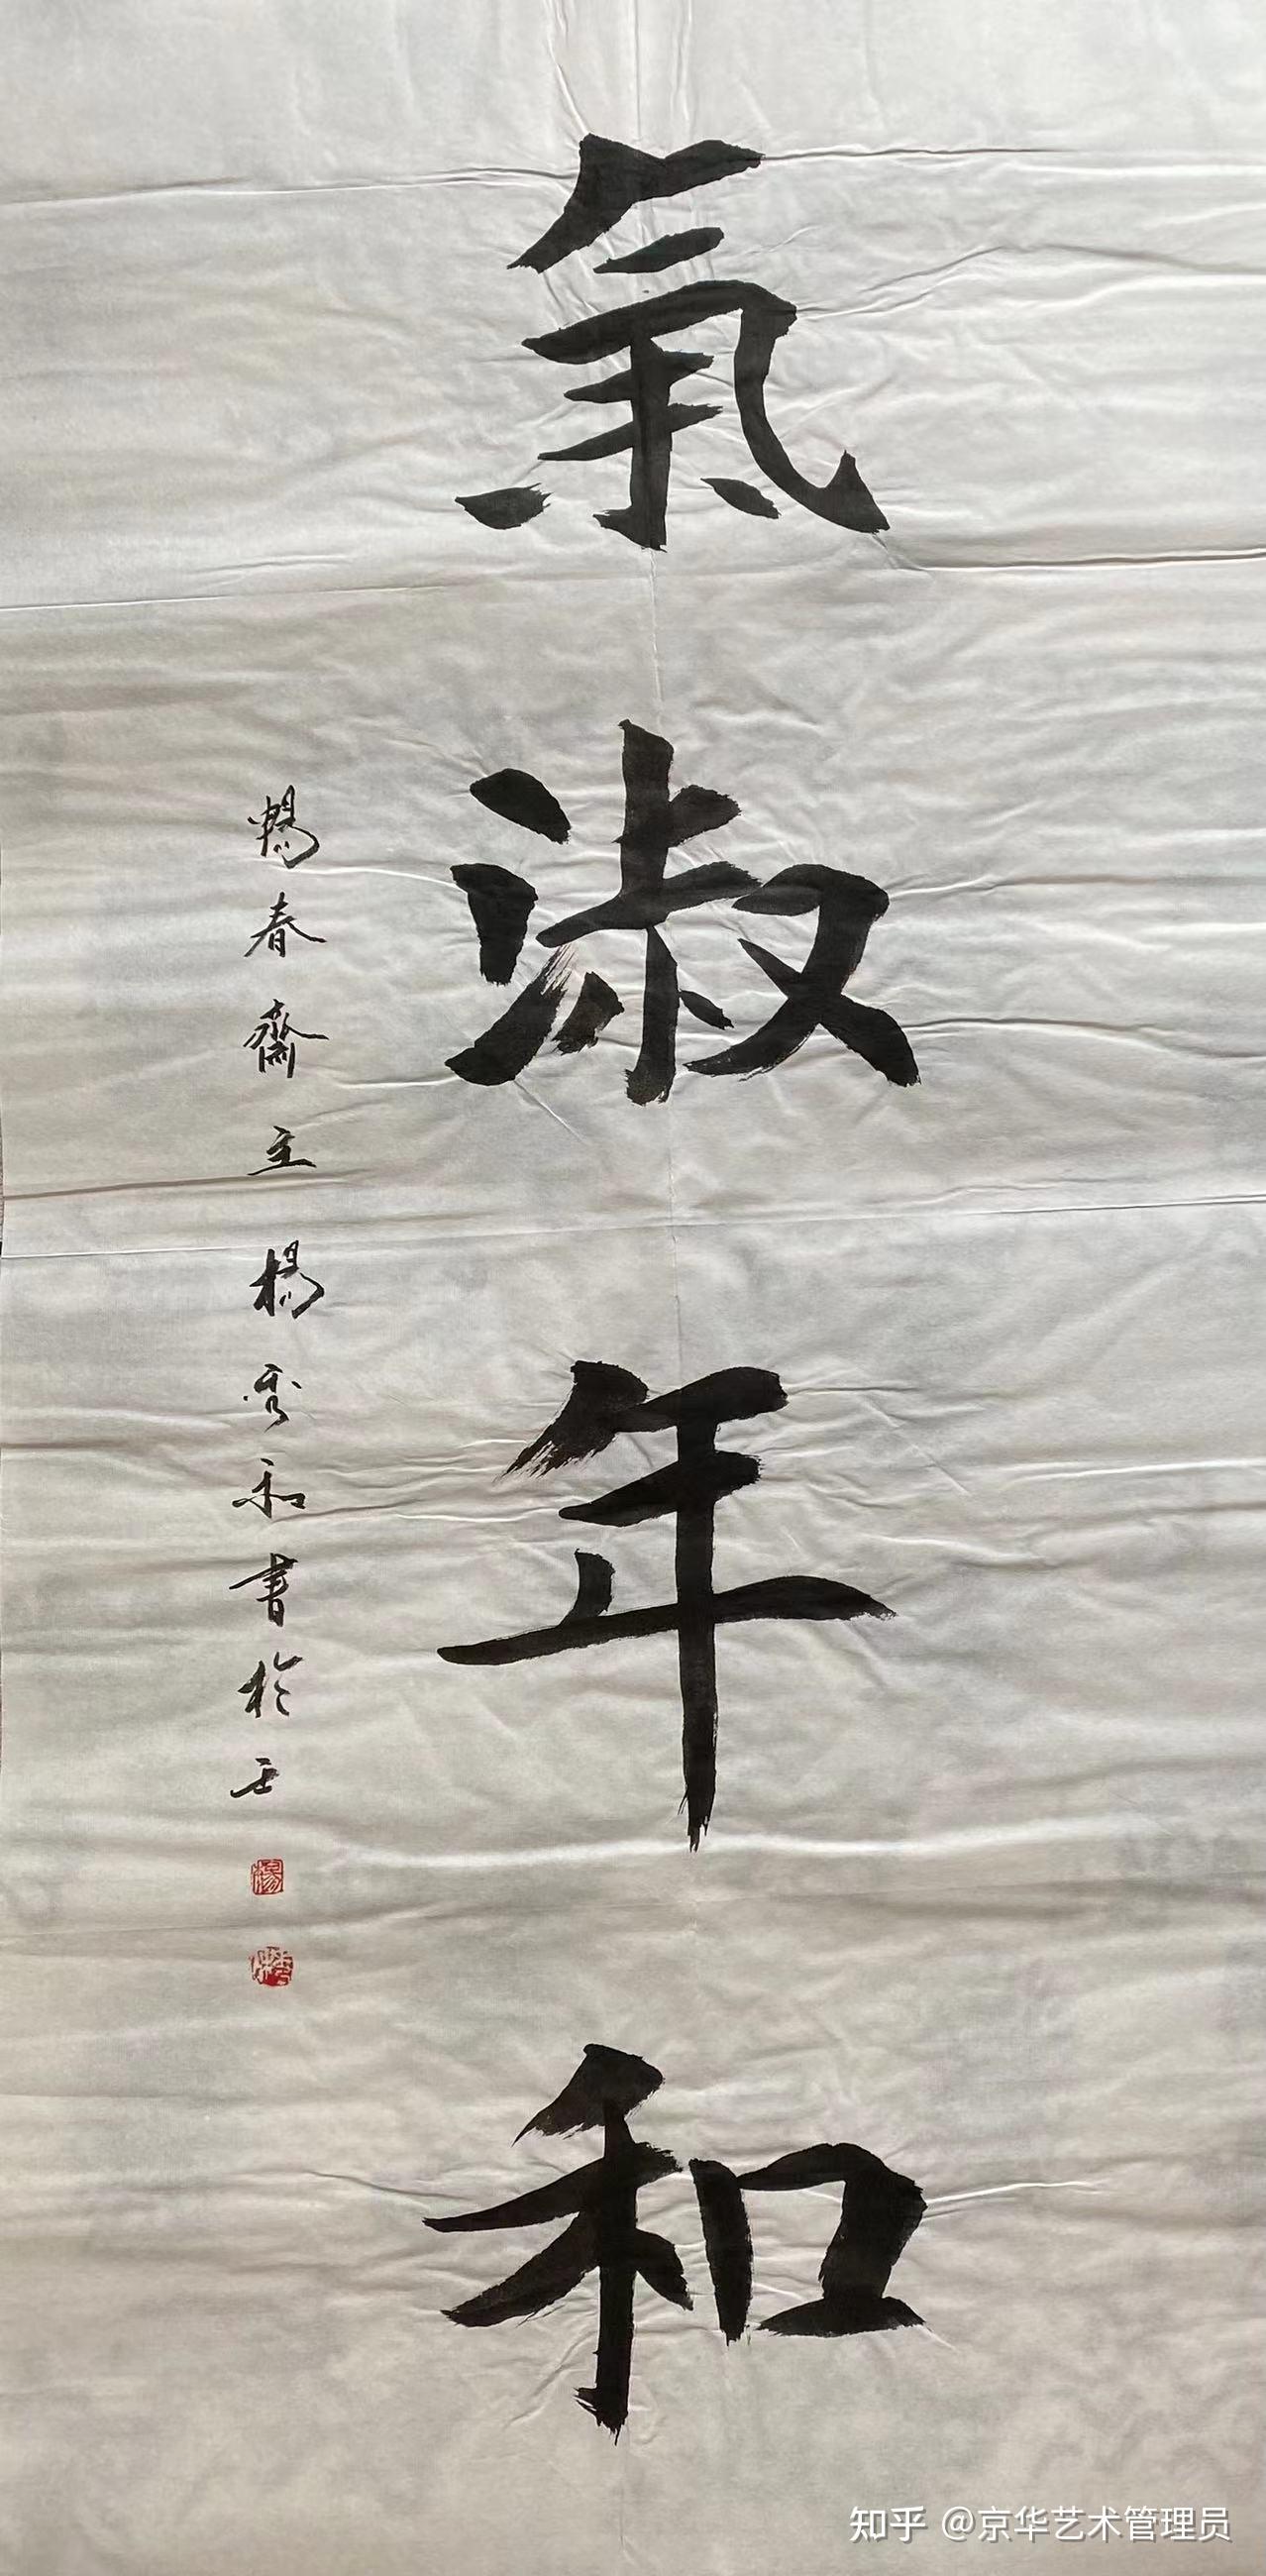 氣淑年和
暢春齋主楊秀和書於壬
楊
知乎 @京华艺术管理员